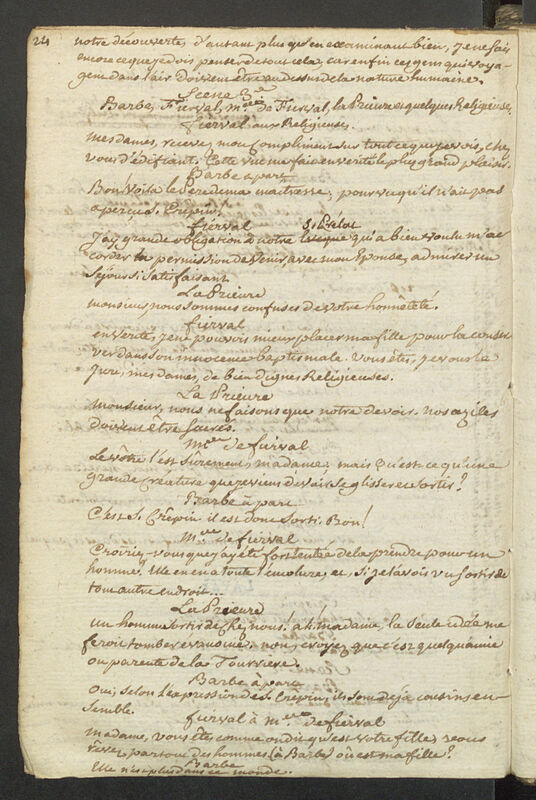 24
notre découverte, d'autant plus qu'en examinant bien, je ne sais
encore ce que je dois penser de tout cela, car enfin ces gens qui voya-
gent dans l'air doivent être au dessus de la nature humaine.
Scene 3e
Barbe, Fierval, Mme de Fierval, la Prieure et quelques Religieuses.
Fierval aux Religieuses.
Mesdames, recevez mon compliment sur tout ce que je vois, chez
vous d'édifiant. Cette vue me fait en verité le plus grand plaisir.
Barbe à part
Bon! voila le Pere de ma maitresse; pourvu qu'il n'ait pas
aperçu S. Crepin.
Fierval
J'ay grande obligation à notre St Prélat qui a bien voulu m'ac
corder la permission de venir avec mon Epouse, admirer un
séjour si satisfaisant
La Prieure
Monsieur, nous sommes confuses de votre honnêteté.
Fierval
en verité, je ne pouvois mieux placer ma fille pour la conser
ver dans son innocence baptismale. Vous êtes, je vous le
jure, mes dames, de bien dignes Religieuses.
La Prieure
Monsieur, nous ne faisons que notre devoir. nos aziles
doivent être sacrés.
Mme de fierval
Le vôtre l'est sûrement, madame; mais qu'est-ce qu'une
grande creature que je viens de voir se glisser et sortir?
Barbe à part
C'est S. Crepin: il est donc sorti. Bon!
Mme de fierval
Croiriez-vous que j'ay été fort tentée de la prendre pour un
homme? Elle en en a toute l'encolure, et, si je l'avois vu sortir de
tout autre endroit...
La Prieure
un homme sortir de chez nous! ah! madame, la seule idée me
feroit tomber évanouie. non, croyez que c'est quelqu'amie
ou parente de la Touriere.
Barbe à part
Oui, selon l'expression de S. Crepin, ils sont deja cousins en-
semble.
Fierval à Mme de fierval
madame, vous êtes comme on dit qu'est votre fille; vous
rêvez partout des hommes. (à Barbe) où est ma fille?
Barbe
Elle n'est plus dans ce monde.